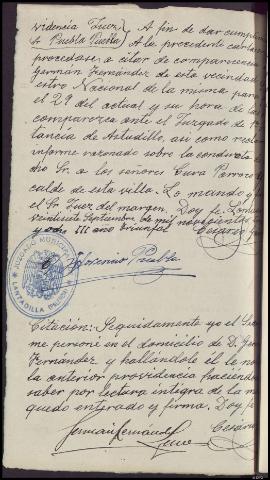 videncia Juez
Sr Puebla Puerta
A fin de dar cumplim
A la precedente carta
procedase a citar de comparecencia
Germán Fernández de esta vecindad
estro Nacional de la misma para
el 29 del actual y su hora de las
comparezca ante el Juzgado de
tancia de Astudillo, así como
informe razonado sobre la conducta de
dho Sr. a los señores Cura Párroco
calde de esta villa. Lo mando y
el Sr Juez del margen. Doy fe. Lan
veintisiete Septiembre de mil novecientos
y ocho III año triunfal
Florencio Puebla
JUZGADO MUNICIPAL
LANTADILLA
Citación: Seguidamente yo el Secre
me personé en el domicilio de D. Ger
Fernández y hallándole él le no
la anterior providencia haciendo
saber por lectura íntegra de la m
quedo enterado y firma. Doy fe
Germán Fernández
Cesáreo